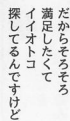 だからそろそろ
満足したくて
イイオトコ
探してるんですけど